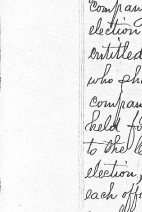 "Compan
election
entitled
who sh
compan
held fo
to the l
election,
each off